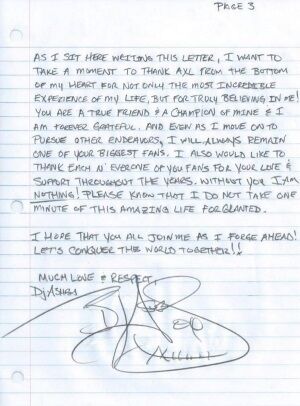 PAGE 3
AS I SIT HERE WRITING THIS LETTER, I WANT TO
TAKE A MOMENT TO THANK AXL FROM THE BOTTOM
OF MY HEART FOR NOT ONLY THE MOST INCREDIBLE
EXPERIENCE OF MY LIFE, BUT FOR TRULY BELIEVING IN ME!
YOU ARE A TRUE FRIEND & A CHAMPION OF MINE & I
AM FOREVER GRATEFUL. AND EVEN AS I MOVE ON TO
PURSUE OTHER ENDEAVORS, I WILL ALWAYS REMAIN
ONE OF YOUR BIGGEST FANS. I ALSO WOULD LIKE TO
THANK EACH N' EVERYONE OF YOU FANS FOR YOUR LOVE &
SUPPORT THROUGHOUT THE YEARS. WITHOUT YOU I AM
NOTHING! PLEASE KNOW THAT I DO NOT TAKE ONE
MINUTE OF THIS AMAZING LIFE FOR GRANTED.
I HOPE THAT YOU ALL JOIN ME AS I FORGE AHEAD!
LET'S CONQUER THE WORLD TOGETHER!!
MUCH LOVE & RESPECT,
DJ ASHBA